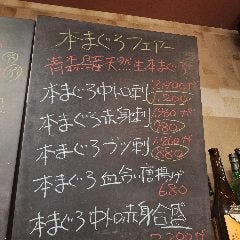 本まぐろフェアー
青森県産天然生本まぐろ
本まぐろ中トロ刺 1,200
本まぐろ赤身刺 980が 780
本まぐろブツ刺 680
本まぐろ血合い唐揚げ 680
本まぐろ中トロ赤身合盛